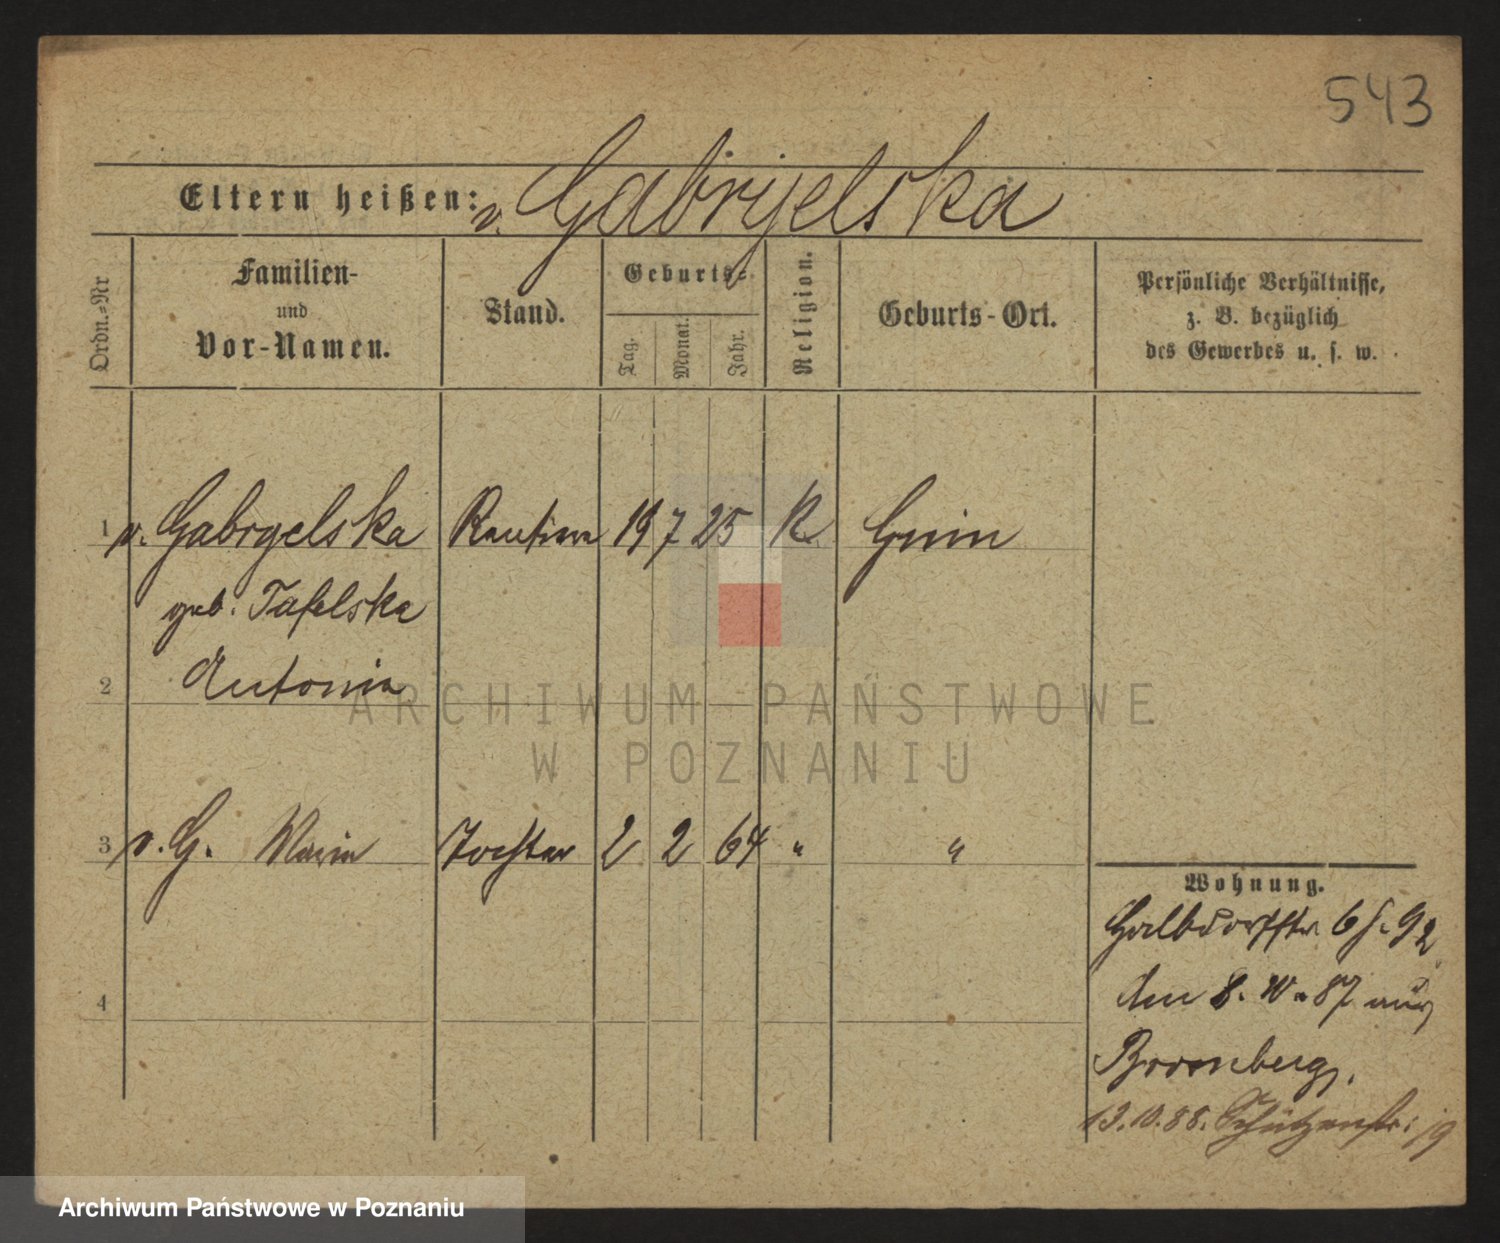 543
Eltern heißen: v. Gabryelska
Ordn.-Nr
Familien-
und
Vor-Namen.
Stand.
Geburts-
Tag.
Monat.
Jahr.
Religion.
Geburts-Ort.
Persönliche Verhältnisse,
z. B. bezüglich
des Gewerbes u. s. w.
1 v. Gabryelska Rentiere 19 7 25 K Gnin
geb. Tafelska
2 Antonia
3 v. G. Maria Tochter 2 2 64 " "
4
Wohnung.
den 8. 10. 87 aus
Bromberg.
13.10.88. Schützenstr: 19
ARCHIWUM PAŃSTWOWE
W POZNANIU
Archiwum Państwowe w Poznaniu